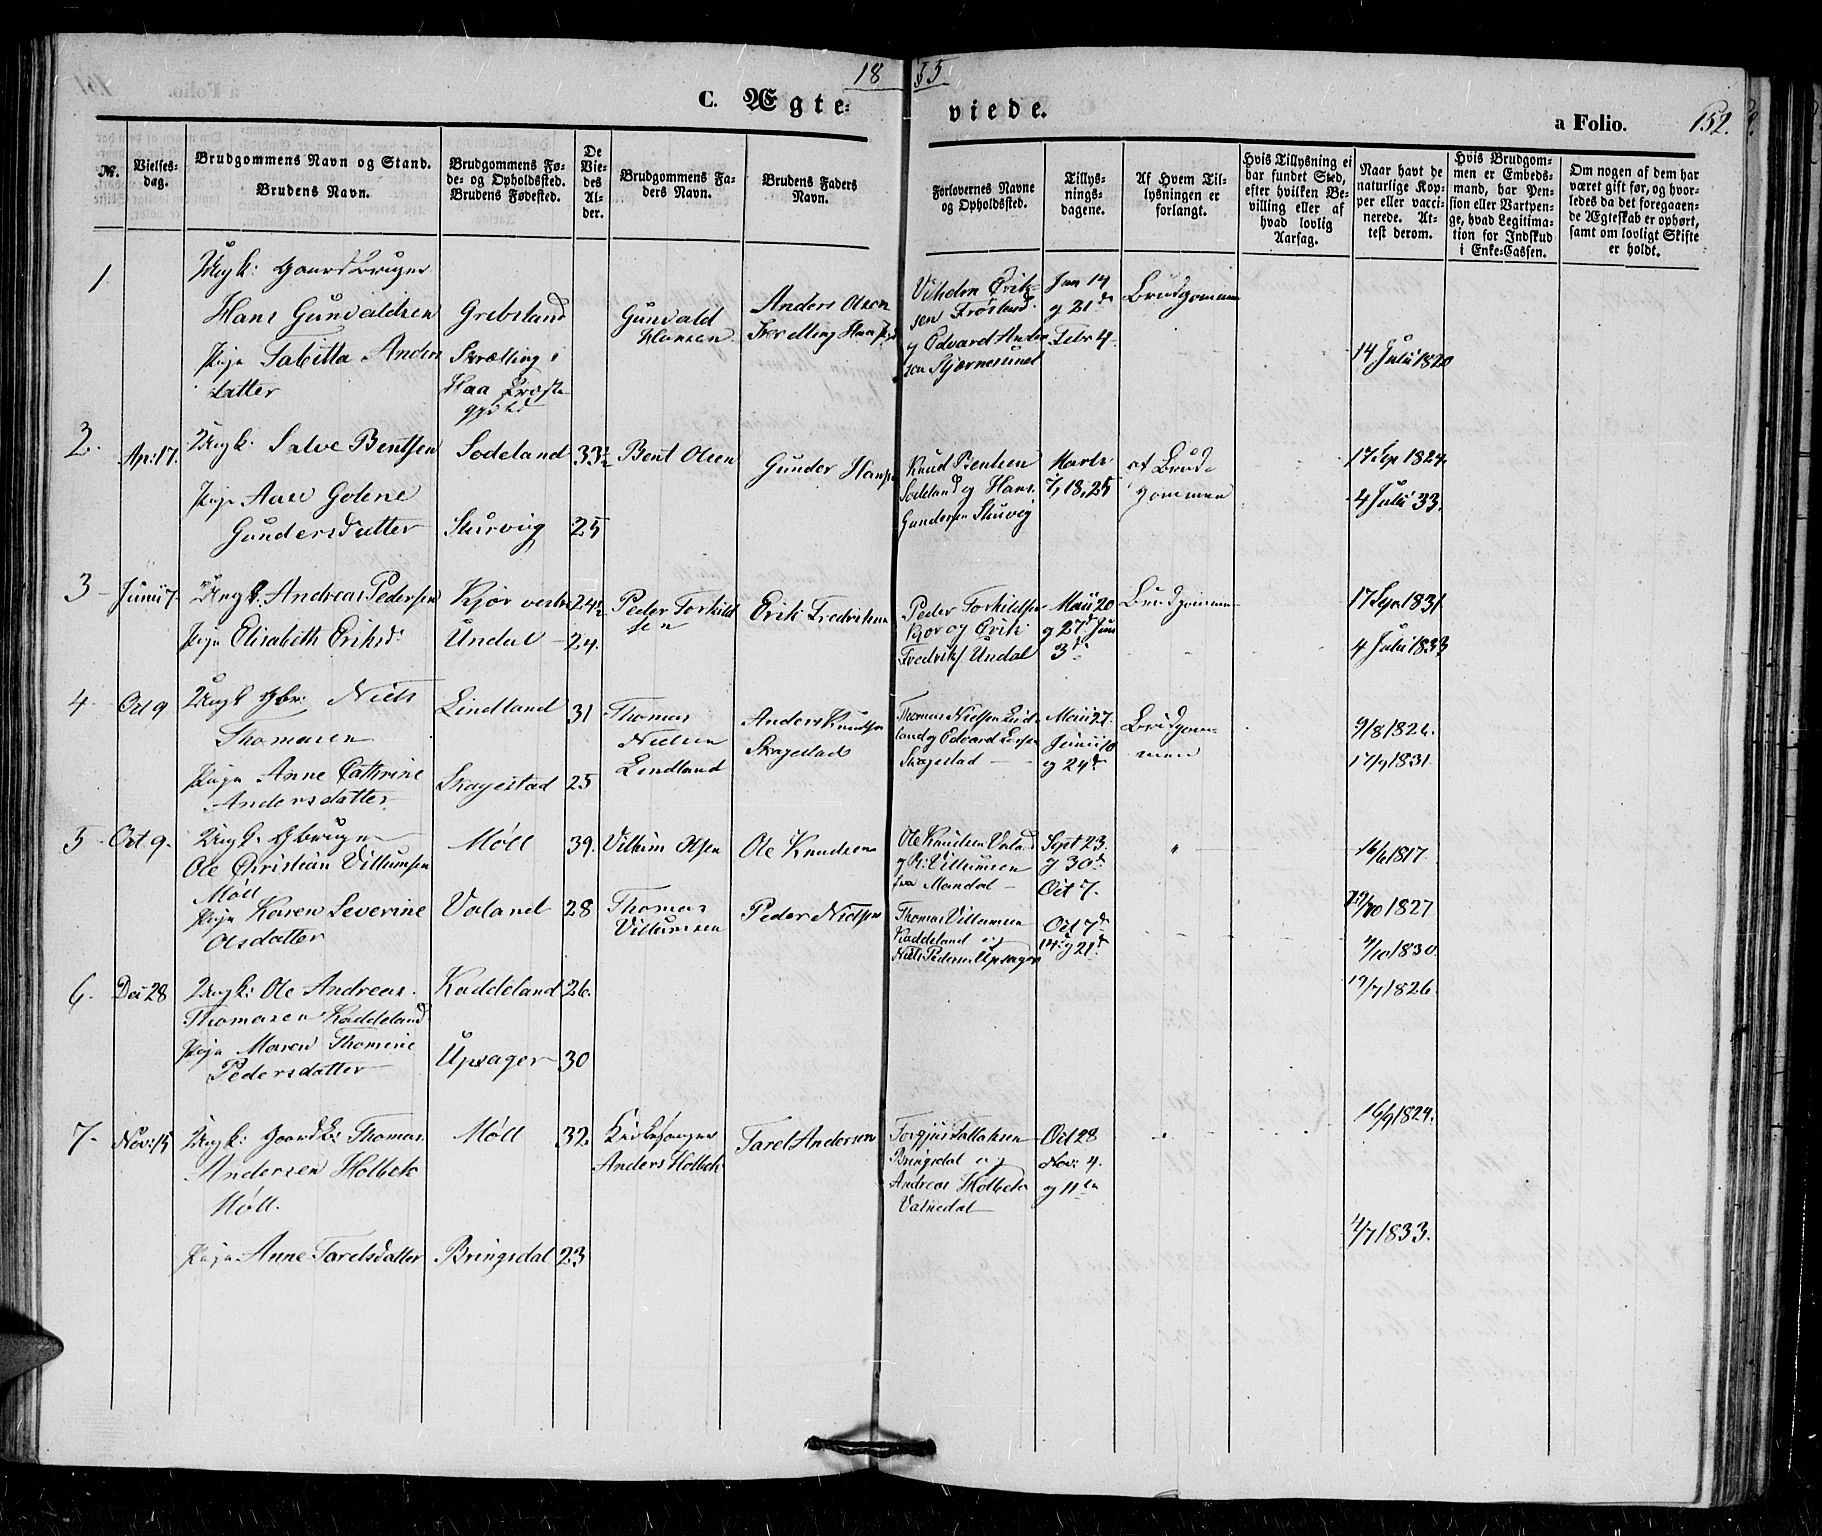 18 55
C. Ægte-
viede.
a Folio. 152.
№.
Vielses-
dag.
Brudgommens Navn og Stand.
Brudens Navn.
Brudgommens Fø-
de- og Opholdssted.
Brudens Fødested.
De
Vie-
des
Al-
der.
Brudgommens Fa-
ders Navn.
Brudens Faders
Navn.
Forlovernes Navne
og Opholdssted.
Tillys-
nings-
dagene.
Af Hvem Til-
lysningen er
forlangt.
Hvis Tillysning ei
har fundet Sted,
efter hvilken Be-
villing eller af
hvad lovlig
Aarsag.
Naar havt de
naturlige Kop-
per eller vacci-
nerede. At-
test derom.
Hvis Brudgom-
men er Embeds-
mand, har Pen-
sion eller Vartpen-
ge, hvad Legitima-
tion for Indskud
i Enke-Cassen.
Om nogen af dem har
været gift før, og hvor-
ledes da det foregaaen-
de Ægteskab er ophørt,
samt om lovligt Skifte
er holdt.
1
Ungk: Gaardbruger
Hans Gunvaldsen
Pige Tabitta Anders
datter
Grebstand
Skrelling i
Haa Præste
Gunvald
Hansen
Anders Olsen
Skrelling Haa
Vilhelm Erik-
sen Frøstad
g Edvard Ander
sen Stjernesund
Jan 14
g 21 d
Febr 4.
Brudgommen
14 Juli 1820
2.
Apr: 17.
Ungk. Salve Bentsen
Pige Aase Golene
Gundersdatter
Sodeland
Skurvig
33½
25
Bent Olsen
Gunder Hans
Knud Bentsen
Sodeland g Hans
Gundersen Skuvig
Marts
7, 18, 25
af Brud-
gommen
17 Sep 1824.
4 Juli 33.
3
Junii 7.
Ungk. Andreas Pedersen
Pige Elisabeth Eriksd:
Kjør vestre
Undal
24½
24.
Peder Torkild
sen
Erik Fredriksen
Peder Torkildsen
Kjør og Erik
Fredriks Undal
Maii 20
g 27 d Juni
3 d
Brudgommen
17 Sep 1831
4 Juli 1833
4
Oct 9
Ungk gbr: Niels
Thomasen
Pige Anne Cathrine
Andersdatter
Lindland
Skagestad
31
25
Thomas
Nielsen
Lindland
Anders Knudsen
Skagestad
Thomas Nielsen Lind
land g Edvard Larsen
Skagestad
Maii 27.
Junii 10
g 24 d
Brudgom-
men
9/8 1826.
17/9 1831.
5
Oct. 9.
Ungk. Gbruger
Ole Christian Villumsen
Møll
Pige Karen Severine
Olsdatter
Møll
Valand
39.
28
Villum Olsen
Ole Knudsen
Ole Knudsen Valand
g O: Villumsen
fra Mandal
Sept 23.
g 30 d
Oct 7.
"
16/6 1817.
29/10 1827
6.
Dec 28
Ungk: Ole Andreas
Thomasen Kaddeland
Pige Maren Thomine
Pedersdatter
Kaddeland
Upsager
26.
30
Thomas
Villumsen
Peder Nielsen
Thomas Villumsen
Kaddeland og
Niels Pedersen Upsager
Oct 7 d
14 d g 21 d
7/10 1830.
17/7 1826.
7.
Nov: 15
Ungk: Gaardb: Thomas
Andersen Holbek
Møll.
Pige Anne Tarelsdatter
Møll
Bringsdal
32.
23
Kirkesanger
Anders Holbek
Tarel Andersen
Torgjus Tallaksen
Bringsdal og
Andreas Holbek
Valnedal
Oct 28
Nov: 4.
og 11 te
16/9 1824.
4/7 1833.